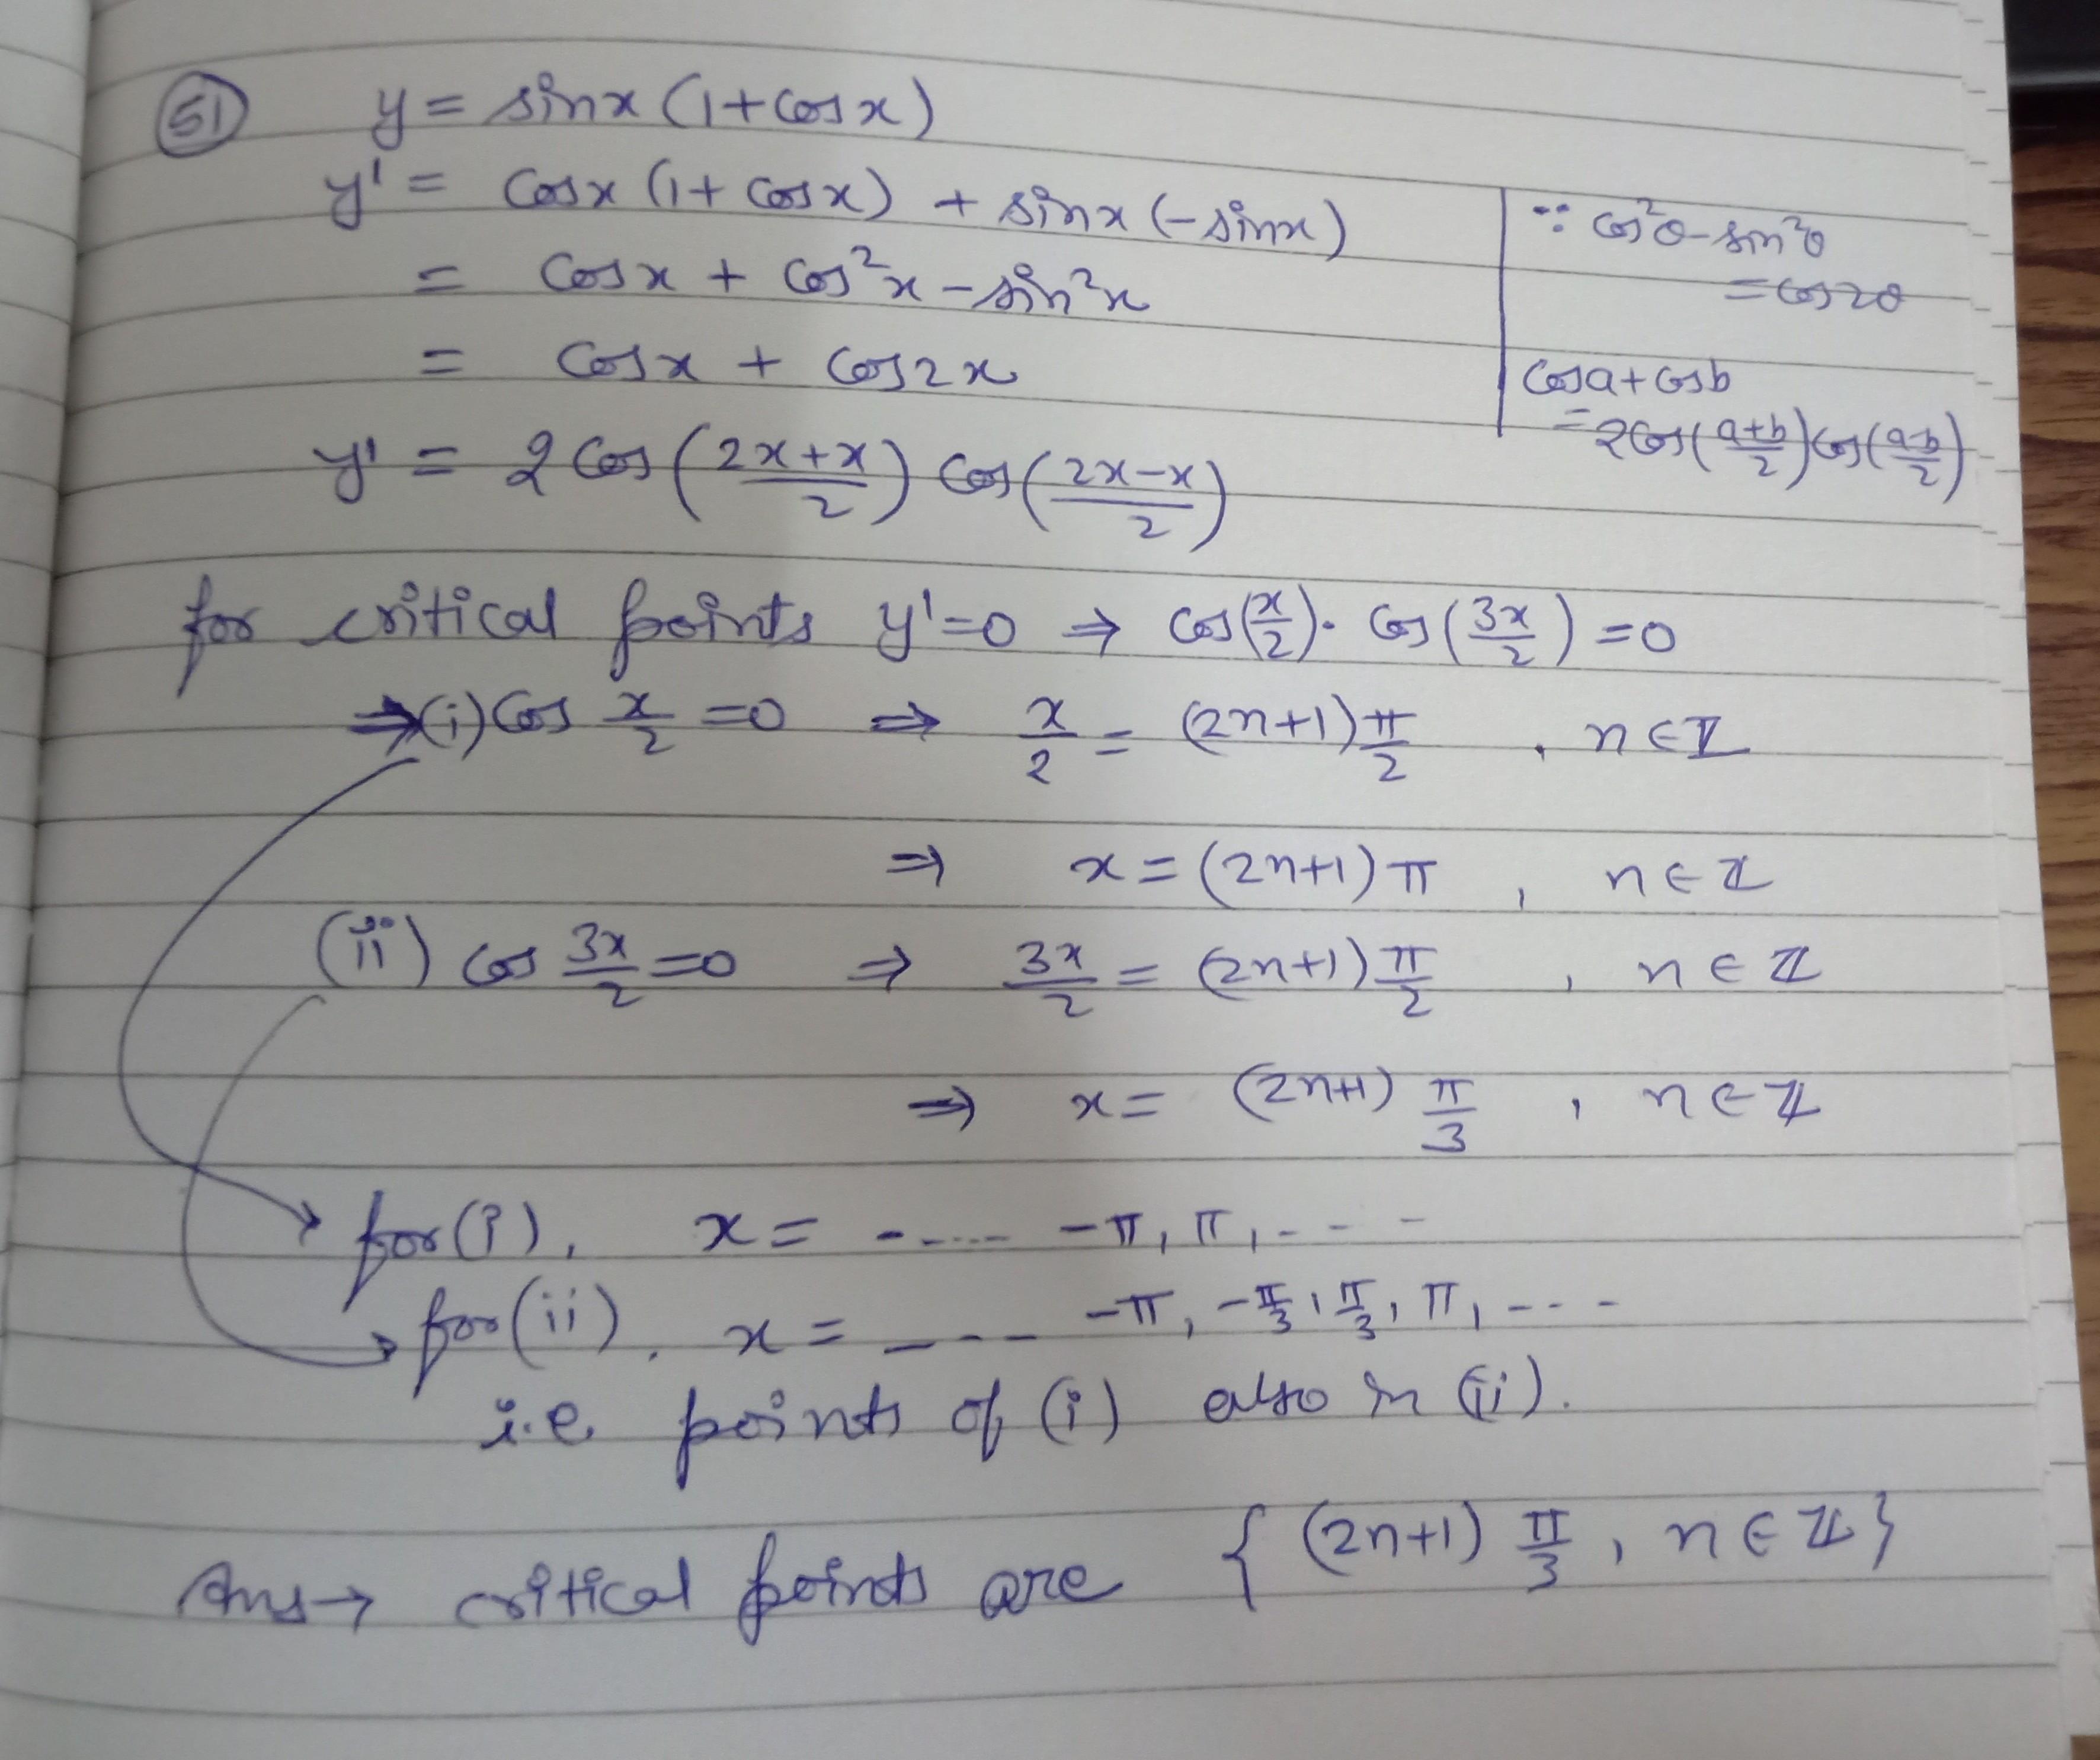 51 y = sinx (1+cosx)
y' = cosx (1+ cosx) + sinx (-sinx)
= cosx + cos²x - sin²x
= cosx + cos2x
y' = 2 cos (2x+x/2) cos (2x-x/2)
∵ cos²θ - sin²θ
= cos2θ
cosa + cosb
= 2cos(a+b/2) cos(a-b/2)
for critical points y'=0 ⇒ cos(x/2). cos(3x/2) = 0
⇒ (i) cos x/2 = 0 ⇒ x/2 = (2n+1)π/2 , n∈Z
⇒ x = (2n+1)π , n∈Z
(ii) cos 3x/2 = 0 ⇒ 3x/2 = (2n+1)π/2 , n∈Z
⇒ x = (2n+1) π/3 , n∈Z
for (i), x = ...... -π, π, ...
for (ii), x = ... -π, -π/3, π/3, π, ...
i.e. points of (i) also in (ii).
Ans → critical points are { (2n+1) π/3 , n∈Z }